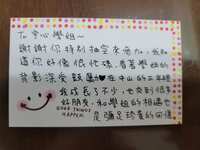 To 宇心學姐~
謝謝你特別抽空來參加，我知
道你好像很忙碌，看著學姐的
背影深受鼓舞 在中山的三年裡
我成長了不少，也交到很多
好朋友，和學姐的相遇也
是彌足珍貴的回憶
GOOD THINGS
HAPPEN